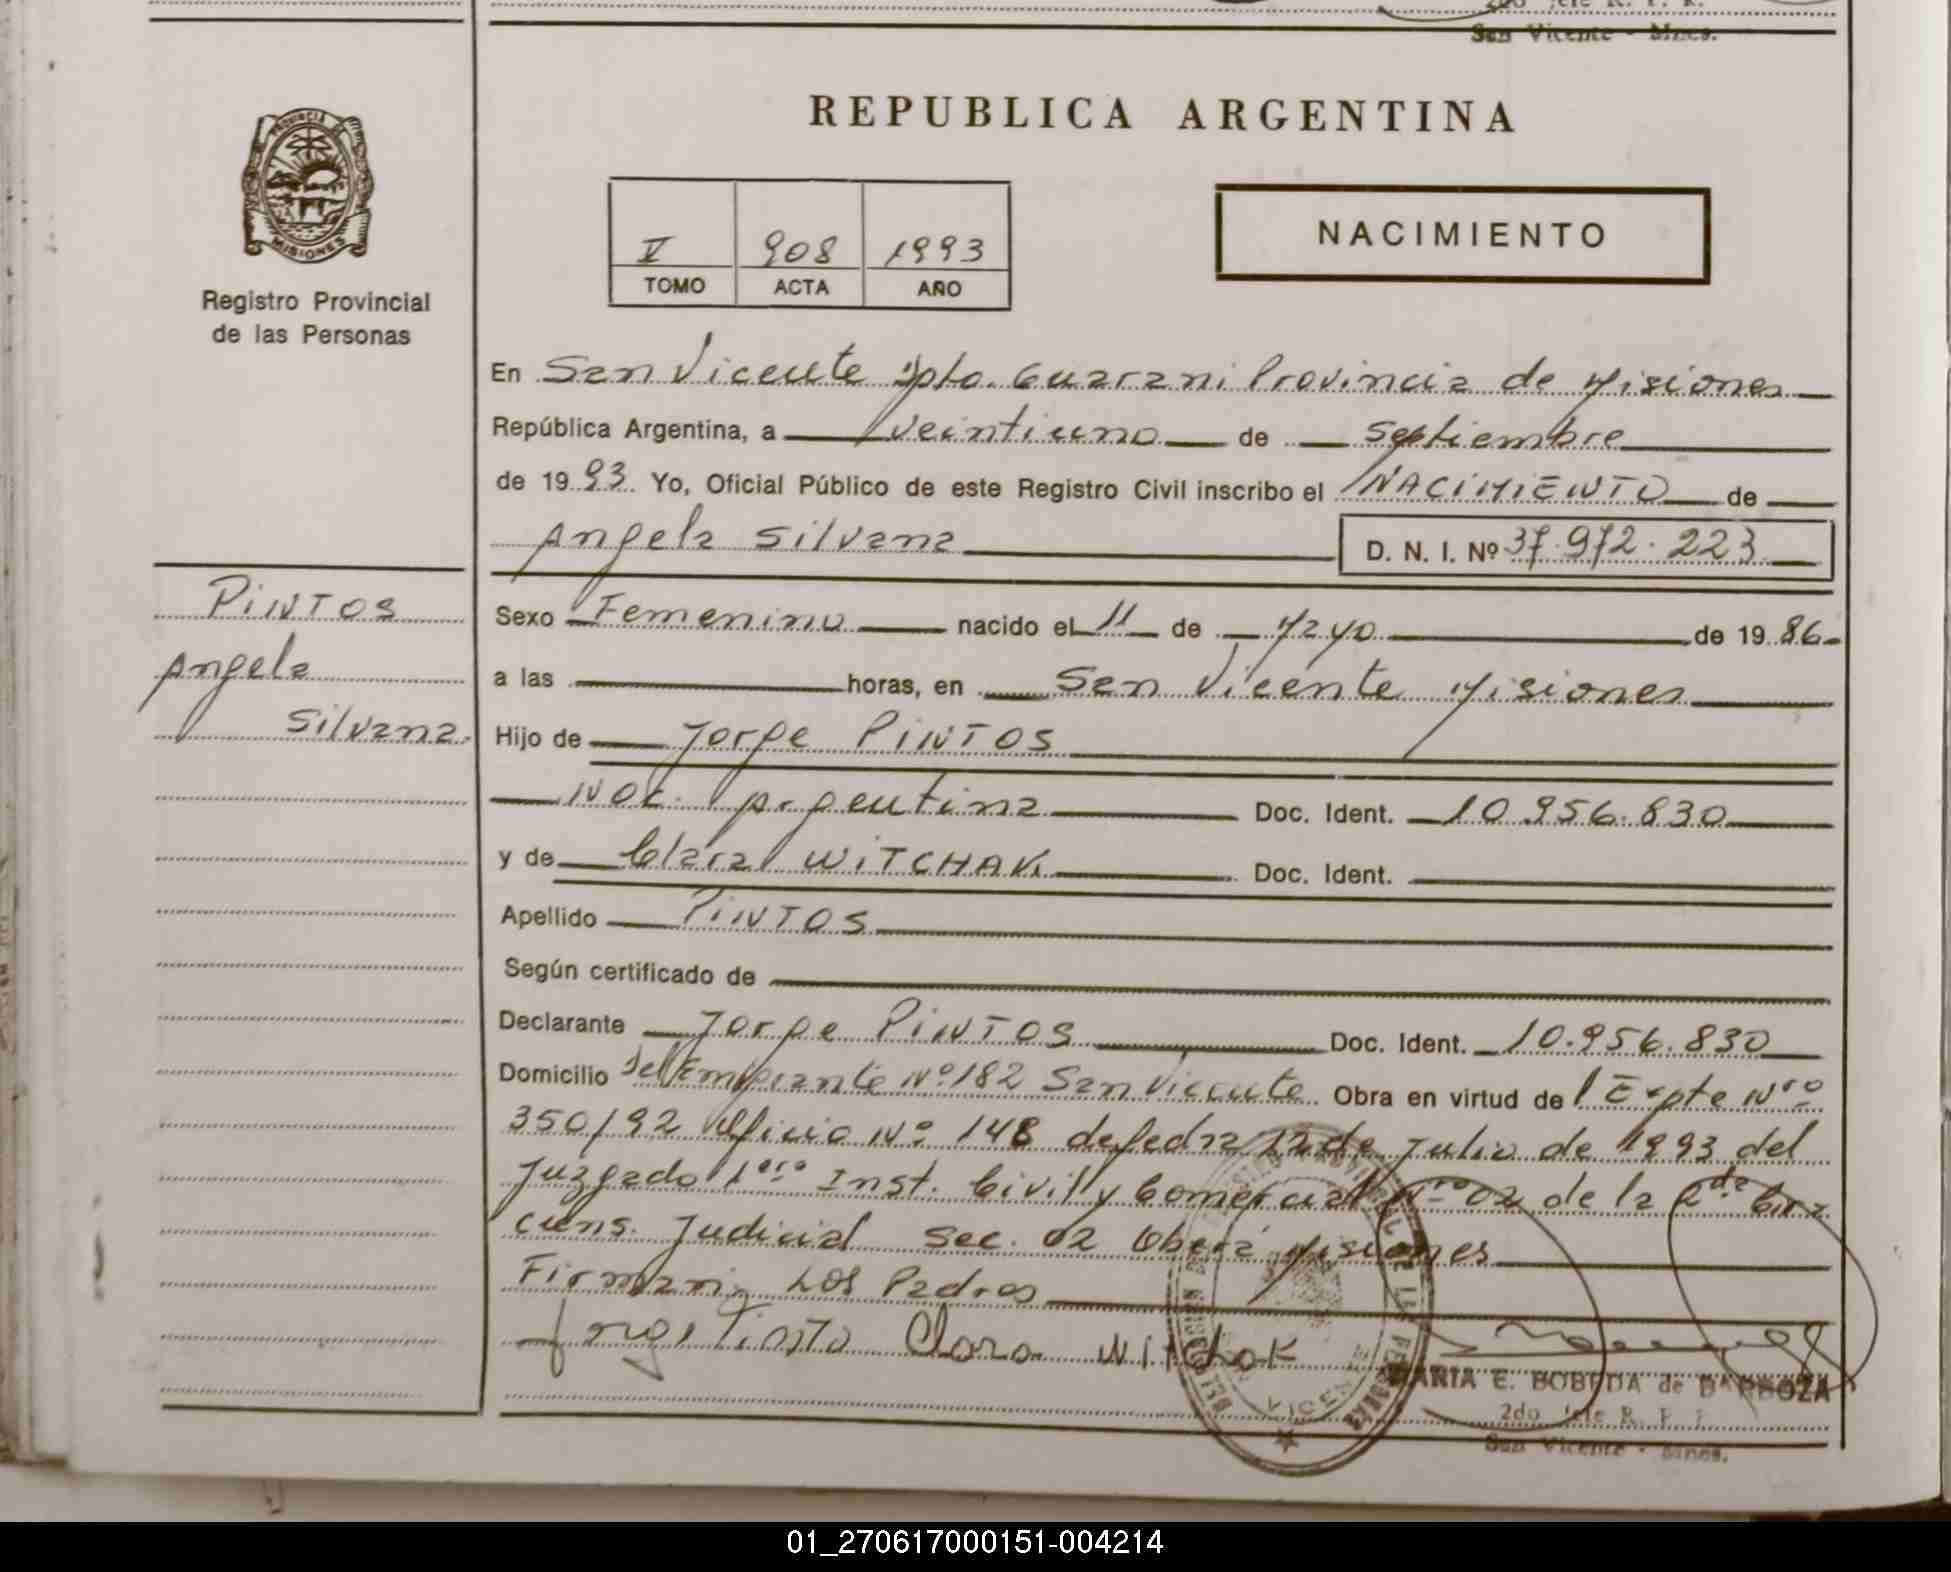 2do Jefe R. P. P.
San Vicente - Mnes.
PROVINCIA DE
MISIONES
Registro Provincial
de las Personas
REPUBLICA ARGENTINA
V 908 1993
TOMO ACTA AÑO
NACIMIENTO
En San Vicente Dpto. Guarani Provincia de Misiones
República Argentina, a veintiuno de septiembre
de 1993. Yo, Oficial Público de este Registro Civil inscribo el NACIMIENTO de
Angela Silvana D. N. I. Nº 37.972.223
PINTOS
Angela
Silvana.
Sexo Femenino nacido el 11 de Mayo de 1986
a las horas, en San Vicente Misiones
Hijo de Jorge PINTOS
Nac. Argentina Doc. Ident. 10.956.830
y de Clara WITCHAK Doc. Ident.
Apellido PINTOS
Según certificado de
Declarante Jorge PINTOS Doc. Ident. 10.956.830
Domicilio del Emigrante Nº 182 San Vicente Obra en virtud del Expte Nro
350/92 Oficio Nº 148 de fedra 12 de Julio de 1993 del
Juzgado 1ero Inst. Civil y Comercial Nro 02 de la 2da Circ
cuns. Judicial Sec. 02 Oberá Misiones
Firman: Los Padres
Jorge Pinto Clara Witchak
MARIA E. BOBEDA de BARBOZA
2do Jefe R. P. P.
San Vicente - Mnes.
01_270617000151-004214